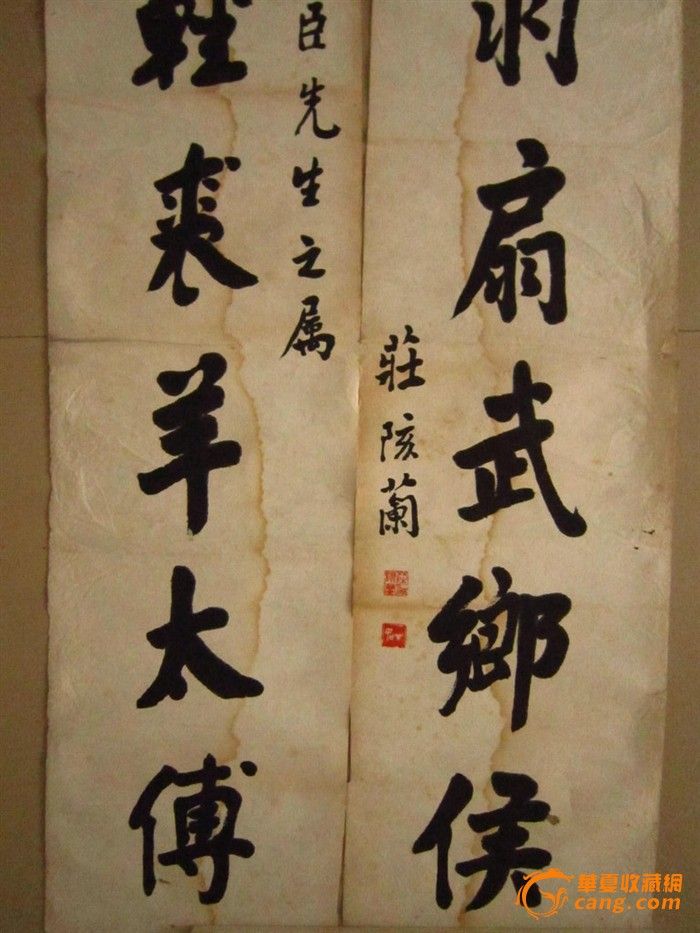 羽扇武鄉侯
莊陔蘭
臣先生之属
輕裘羊太傅
華夏收藏網
cang.com